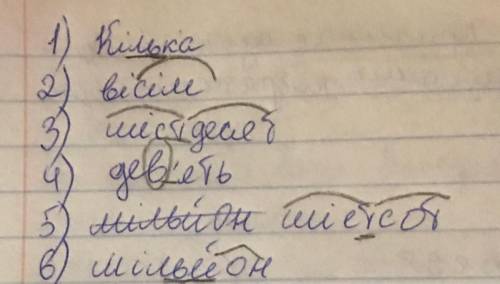 1) Кілька
2) вісім
3) шістдесят
4) дев'ять
5) мільйон шістсот
6) мільйон